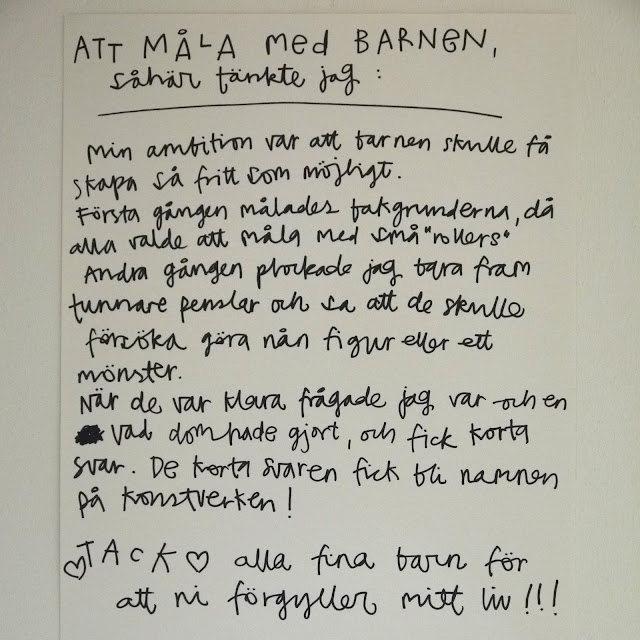 ATT MÅLA med BARNEN,
såhär tänkte jag :
Min ambition var att barnen skulle få
skapa så fritt som möjligt.
Första gången målades bakgrunderna, då
alla valde att måla med små "rollers"
Andra gången plockade jag bara fram
tunnare penslar och sa att de skulle
försöka göra nån figur eller ett
mönster.
När de var klara frågade jag var och en
vad dom hade gjort, och fick korta
svar. De korta svaren fick bli namnen
på konstverken!
♡TACK♡ alla fina barn för
att ni förgyller mitt liv!!!